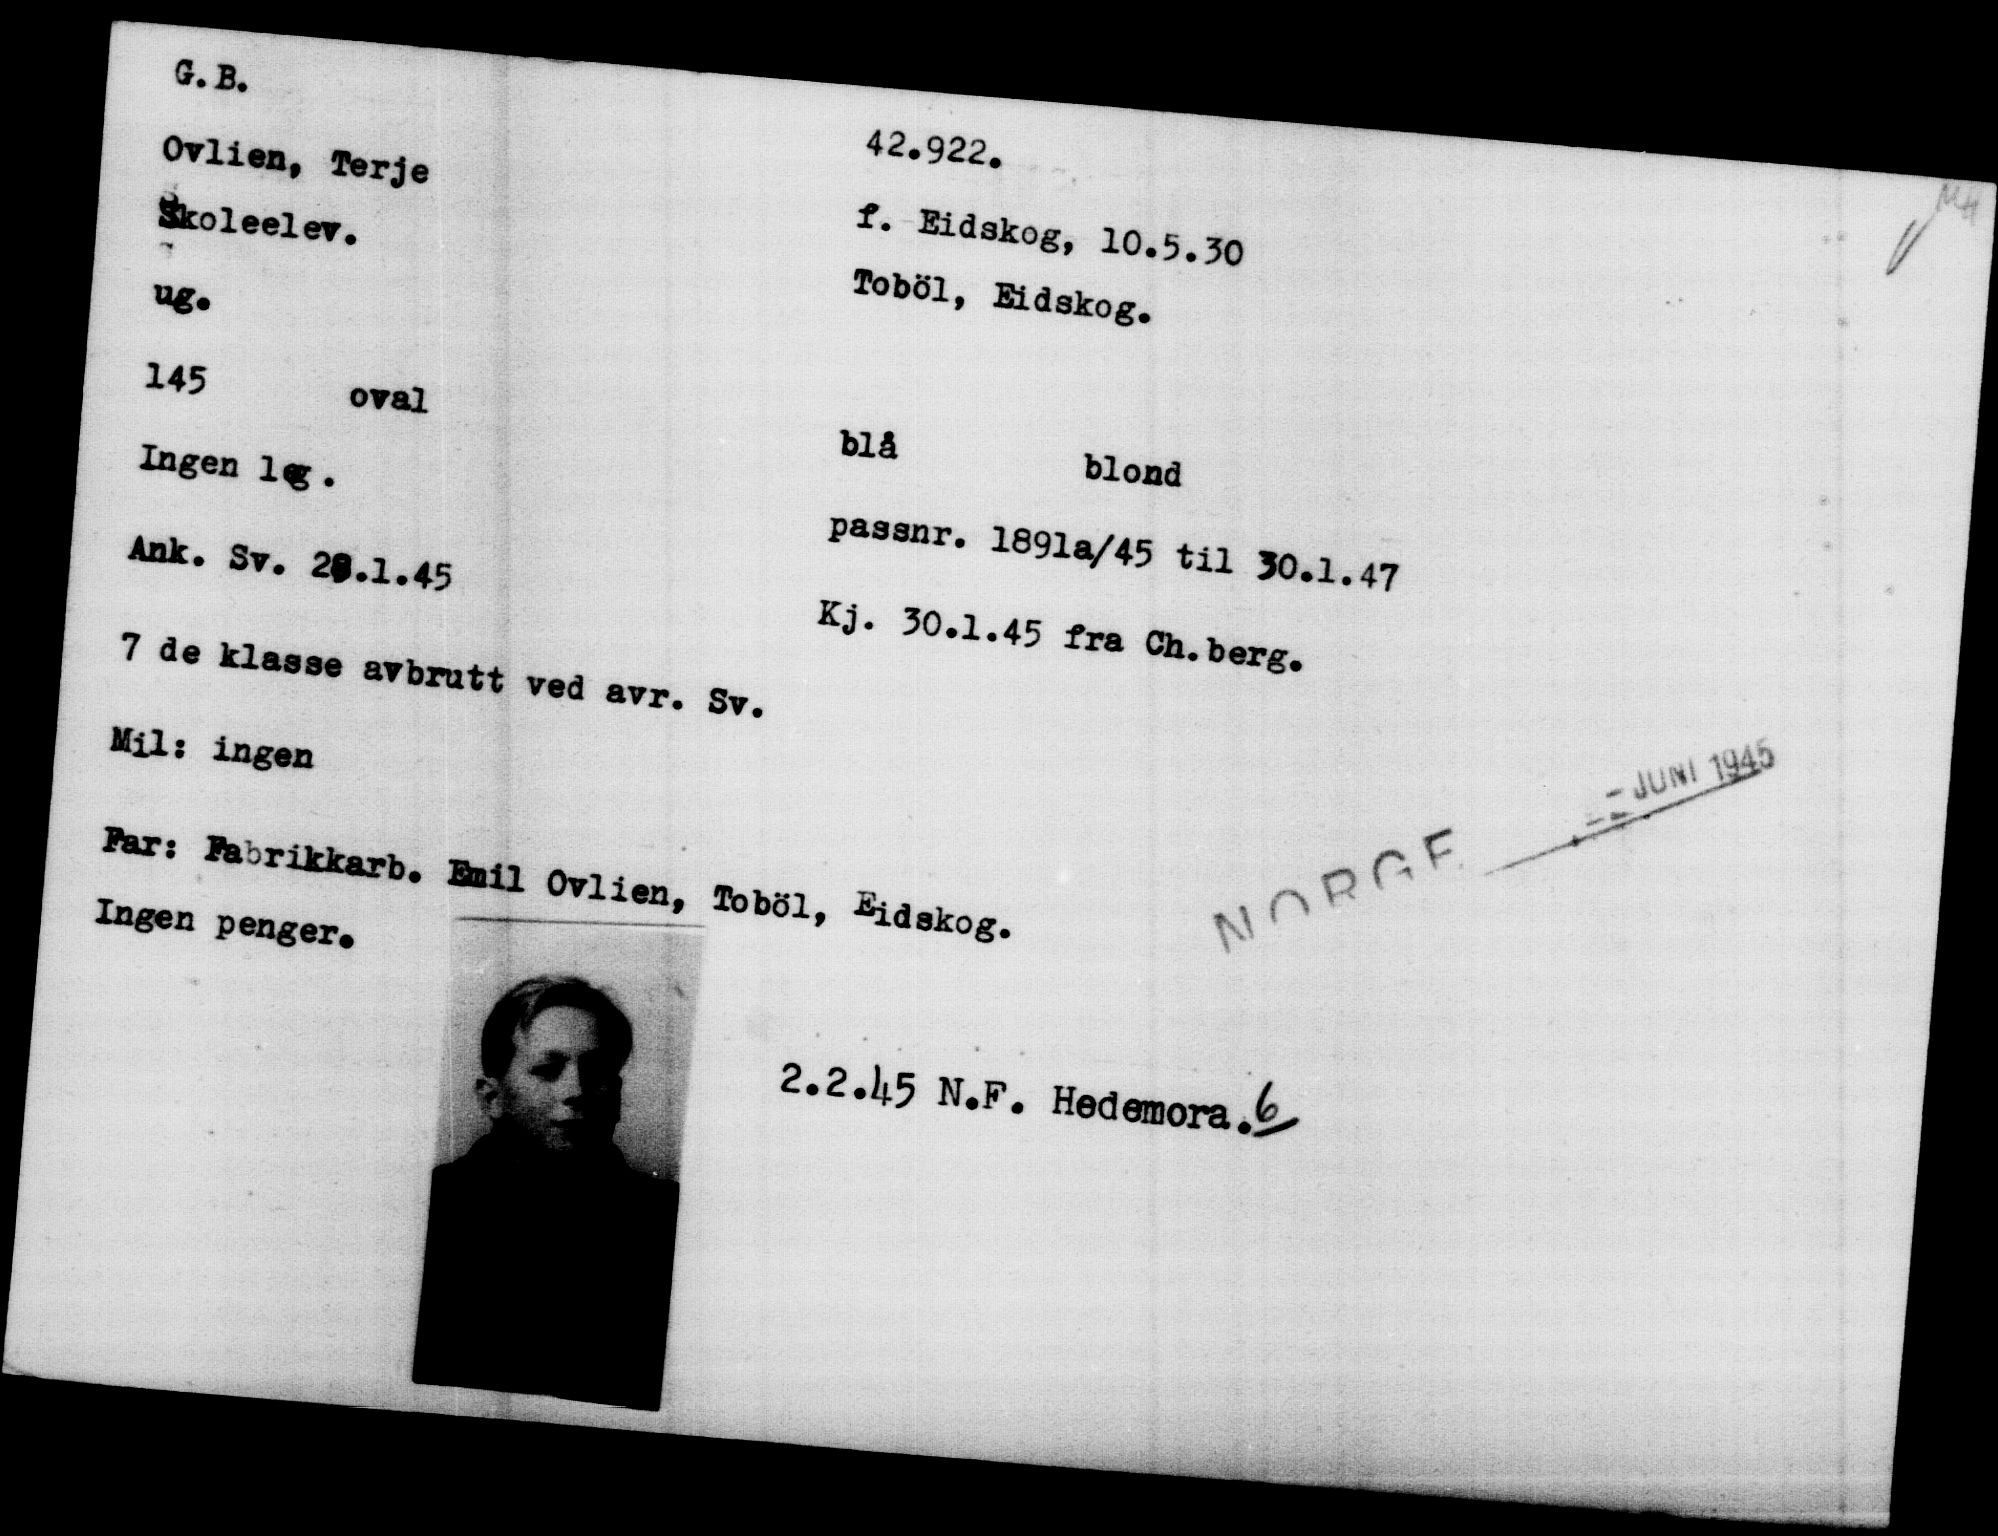 G.B.
42.922.
Ovlien, Terje
f. Eidskog, 10.5.30
Skoleelev.
Toböl, Eidskog.
ug.
145 oval
blå blond
Ingen leg.
passnr. 1891a/45 til 30.1.47
Ank. Sv. 28.1.45
Kj. 30.1.45 fra Ch.berg.
7 de klasse avbrutt ved avr. Sv.
Mil: ingen
- JUNI 1945
NORGE
Far: Fabrikkarb. Emil Ovlien, Toböl, Eidskog.
Ingen penger.
2.2.45 N.F. Hedemora. 6